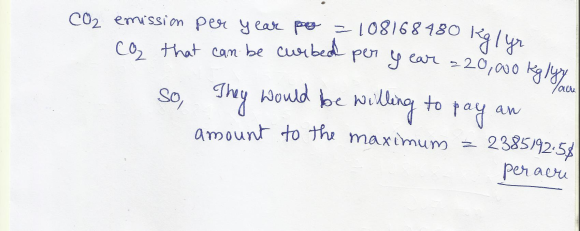 CO2 emission per year = 108168480 kg/yr
CO2 that can be curbed per year = 20,000 kg/yr/acre
So, They would be willing to pay an
amount to the maximum = 2385192.5$
per acre